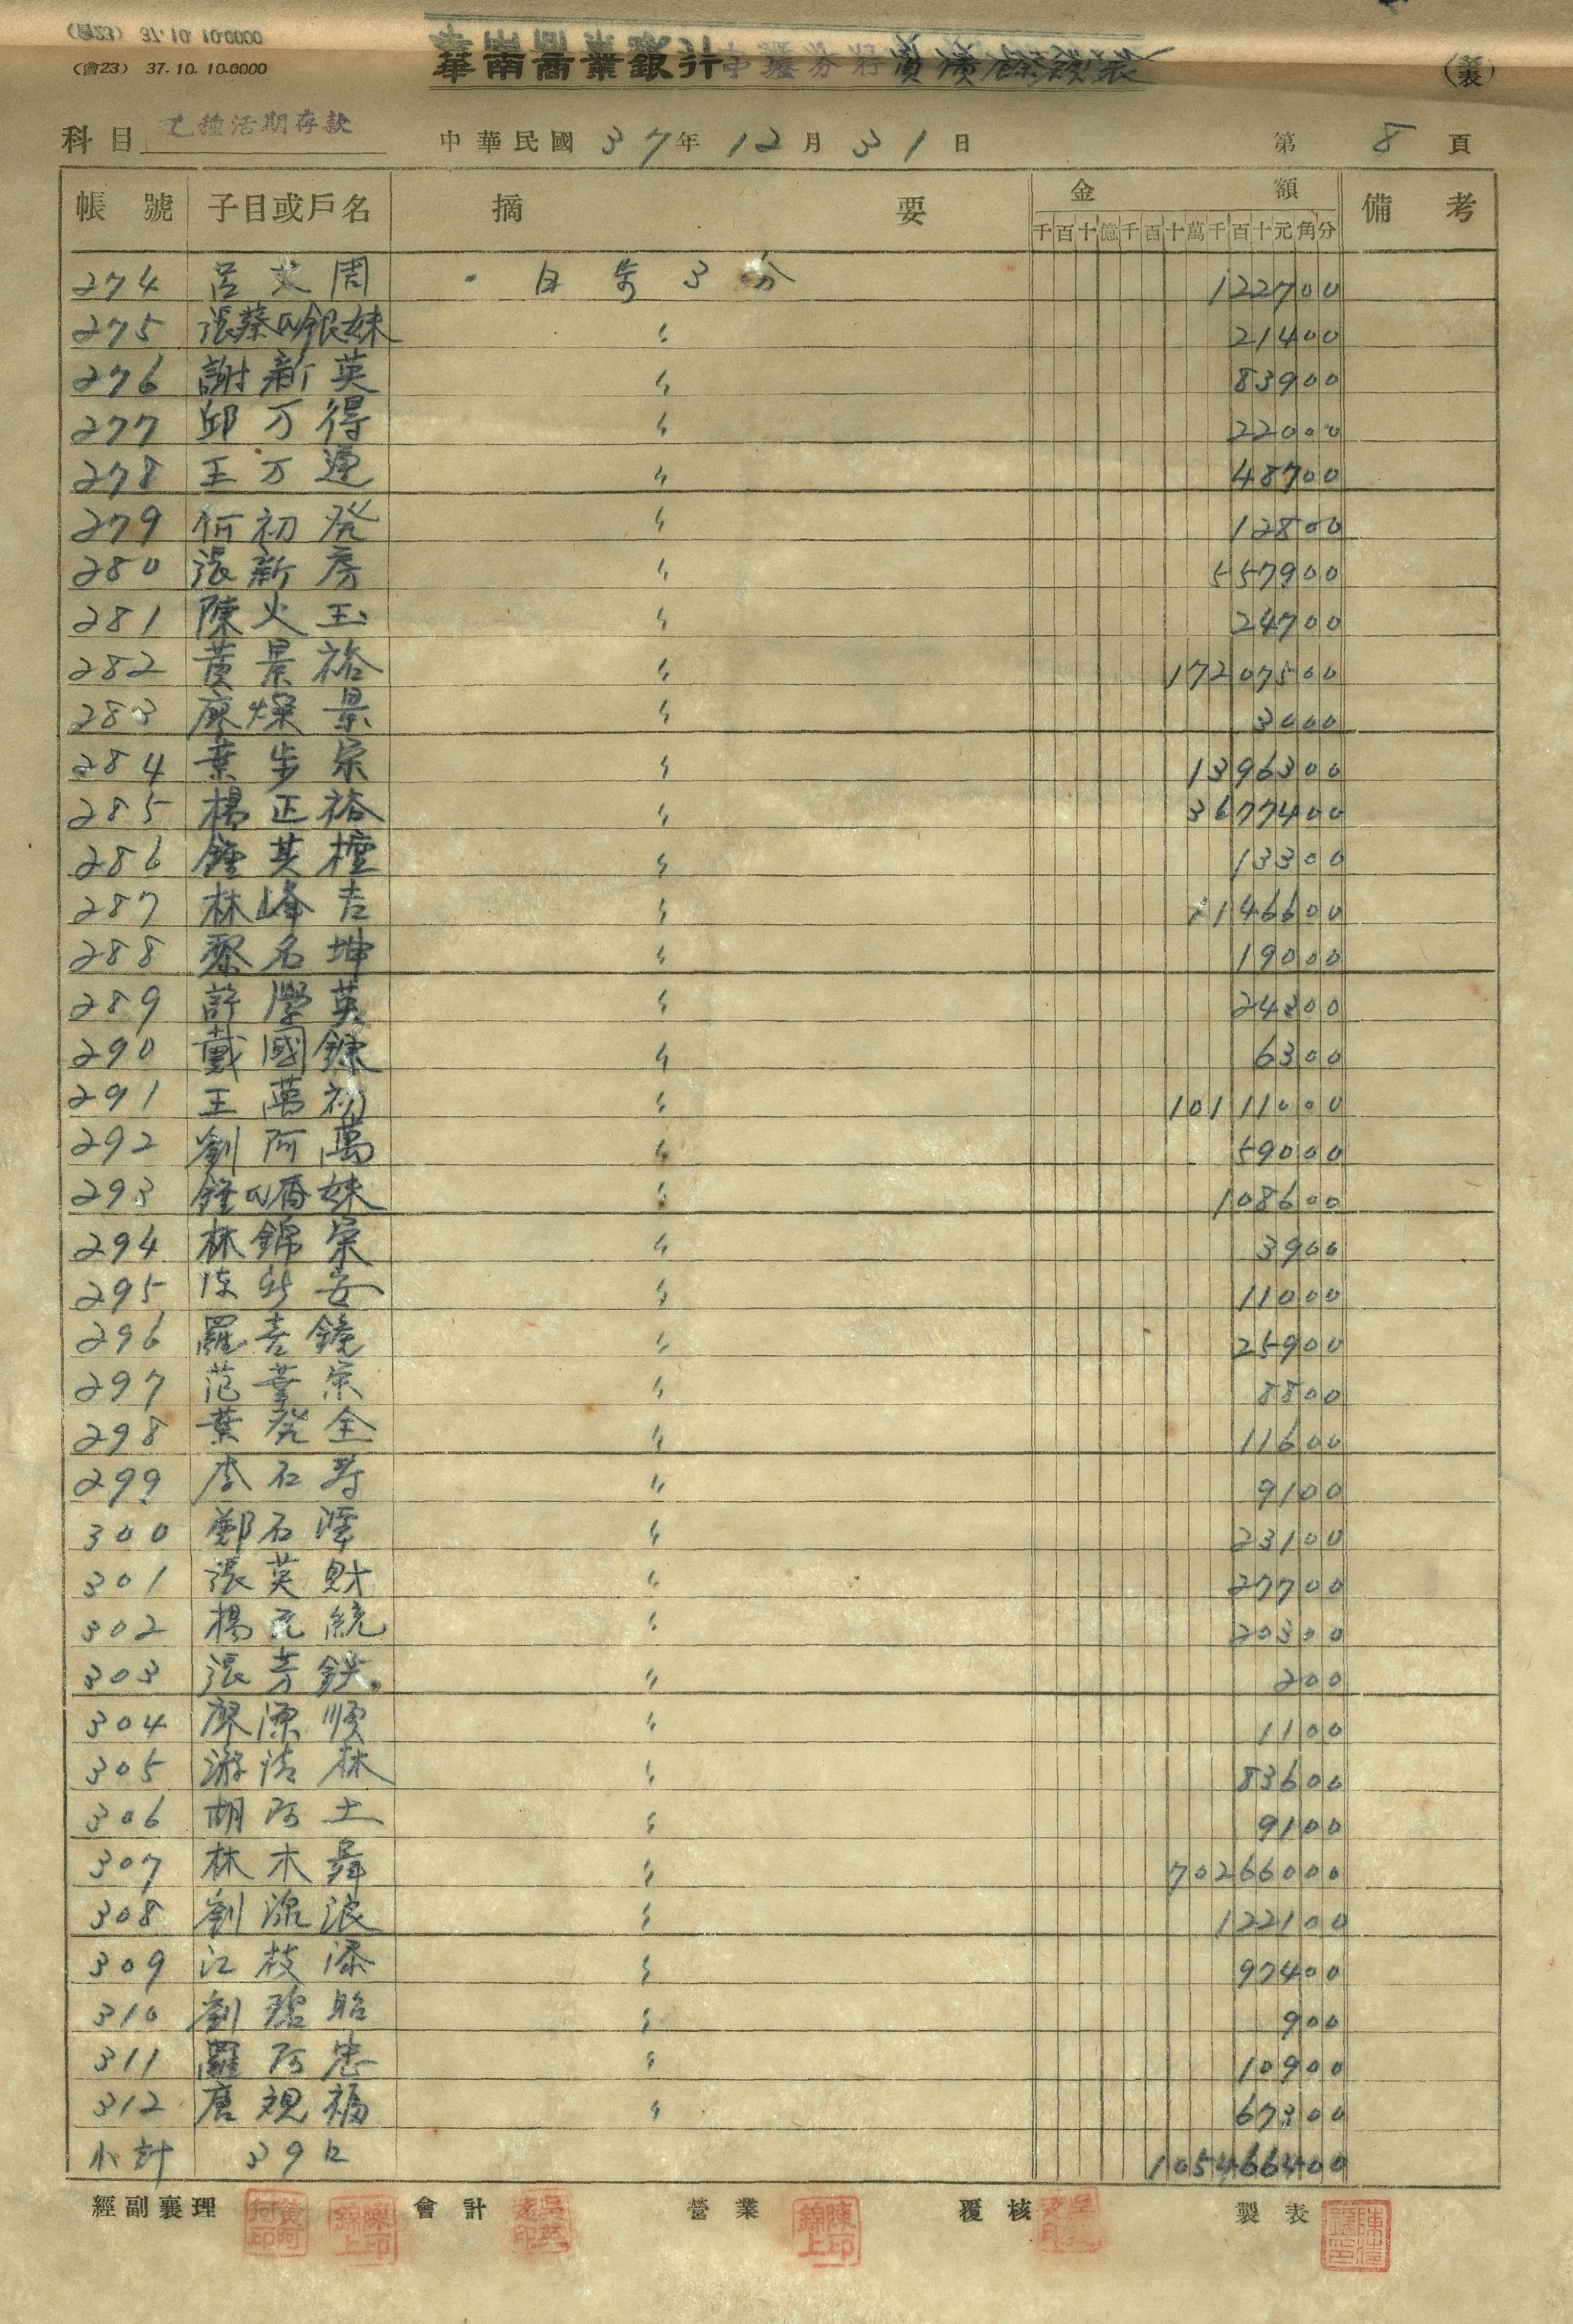 (會23) 37.10.10.0000
(會23) 37.10.10.0000
華南商業銀行中壢分行資債餘額表 (表)
科目 乙種活期存款 中華民國37年12月31日 第8頁
帳號 子目或戶名 摘要 金額 備考
千百十億千百十萬千百十元角分
274 呂火周 日步3分 122700
275 張蔡氏銀妹 〃 21400
276 謝新英 〃 83900
277 邱万得 〃 22000
278 王万運 〃 48700
279 何初発 〃 12800
280 張新房 〃 557900
281 陳火玉 〃 24700
282 黃景裕 〃 17207500
283 廖燦景 〃 3000
284 葉步宗 〃 1396300
285 楊正裕 〃 3677400
286 鍾其檀 〃 13300
287 林峰吉 〃 1146600
288 黎名坤 〃 19000
289 許學英 〃 24300
290 戴國鍊 〃 6300
291 王萬初 〃 10111000
292 劉阿萬 〃 59000
293 鍾氏甬妹 〃 108600
294 林錦宗 〃 3900
295 陳新安 〃 11000
296 羅吉鏡 〃 25900
297 范葉宗 〃 8800
298 葉発全 〃 11600
299 李石寿 〃 9100
300 鄭石澤 〃 23100
301 張英財 〃 27700
302 楊元統 〃 20300
303 張芳鉄 〃 200
304 廖源順 〃 1100
305 游清林 〃 83600
306 胡阿土 〃 9100
307 林木舜 〃 70266000
308 劉流浪 〃 122100
309 江枝添 〃 97400
310 劉瑞貽 〃 900
311 羅阿忠 〃 10900
312 唐覌福 〃 67300
小計 39口 105466400
經副襄理 會計 營業 覆核 製表